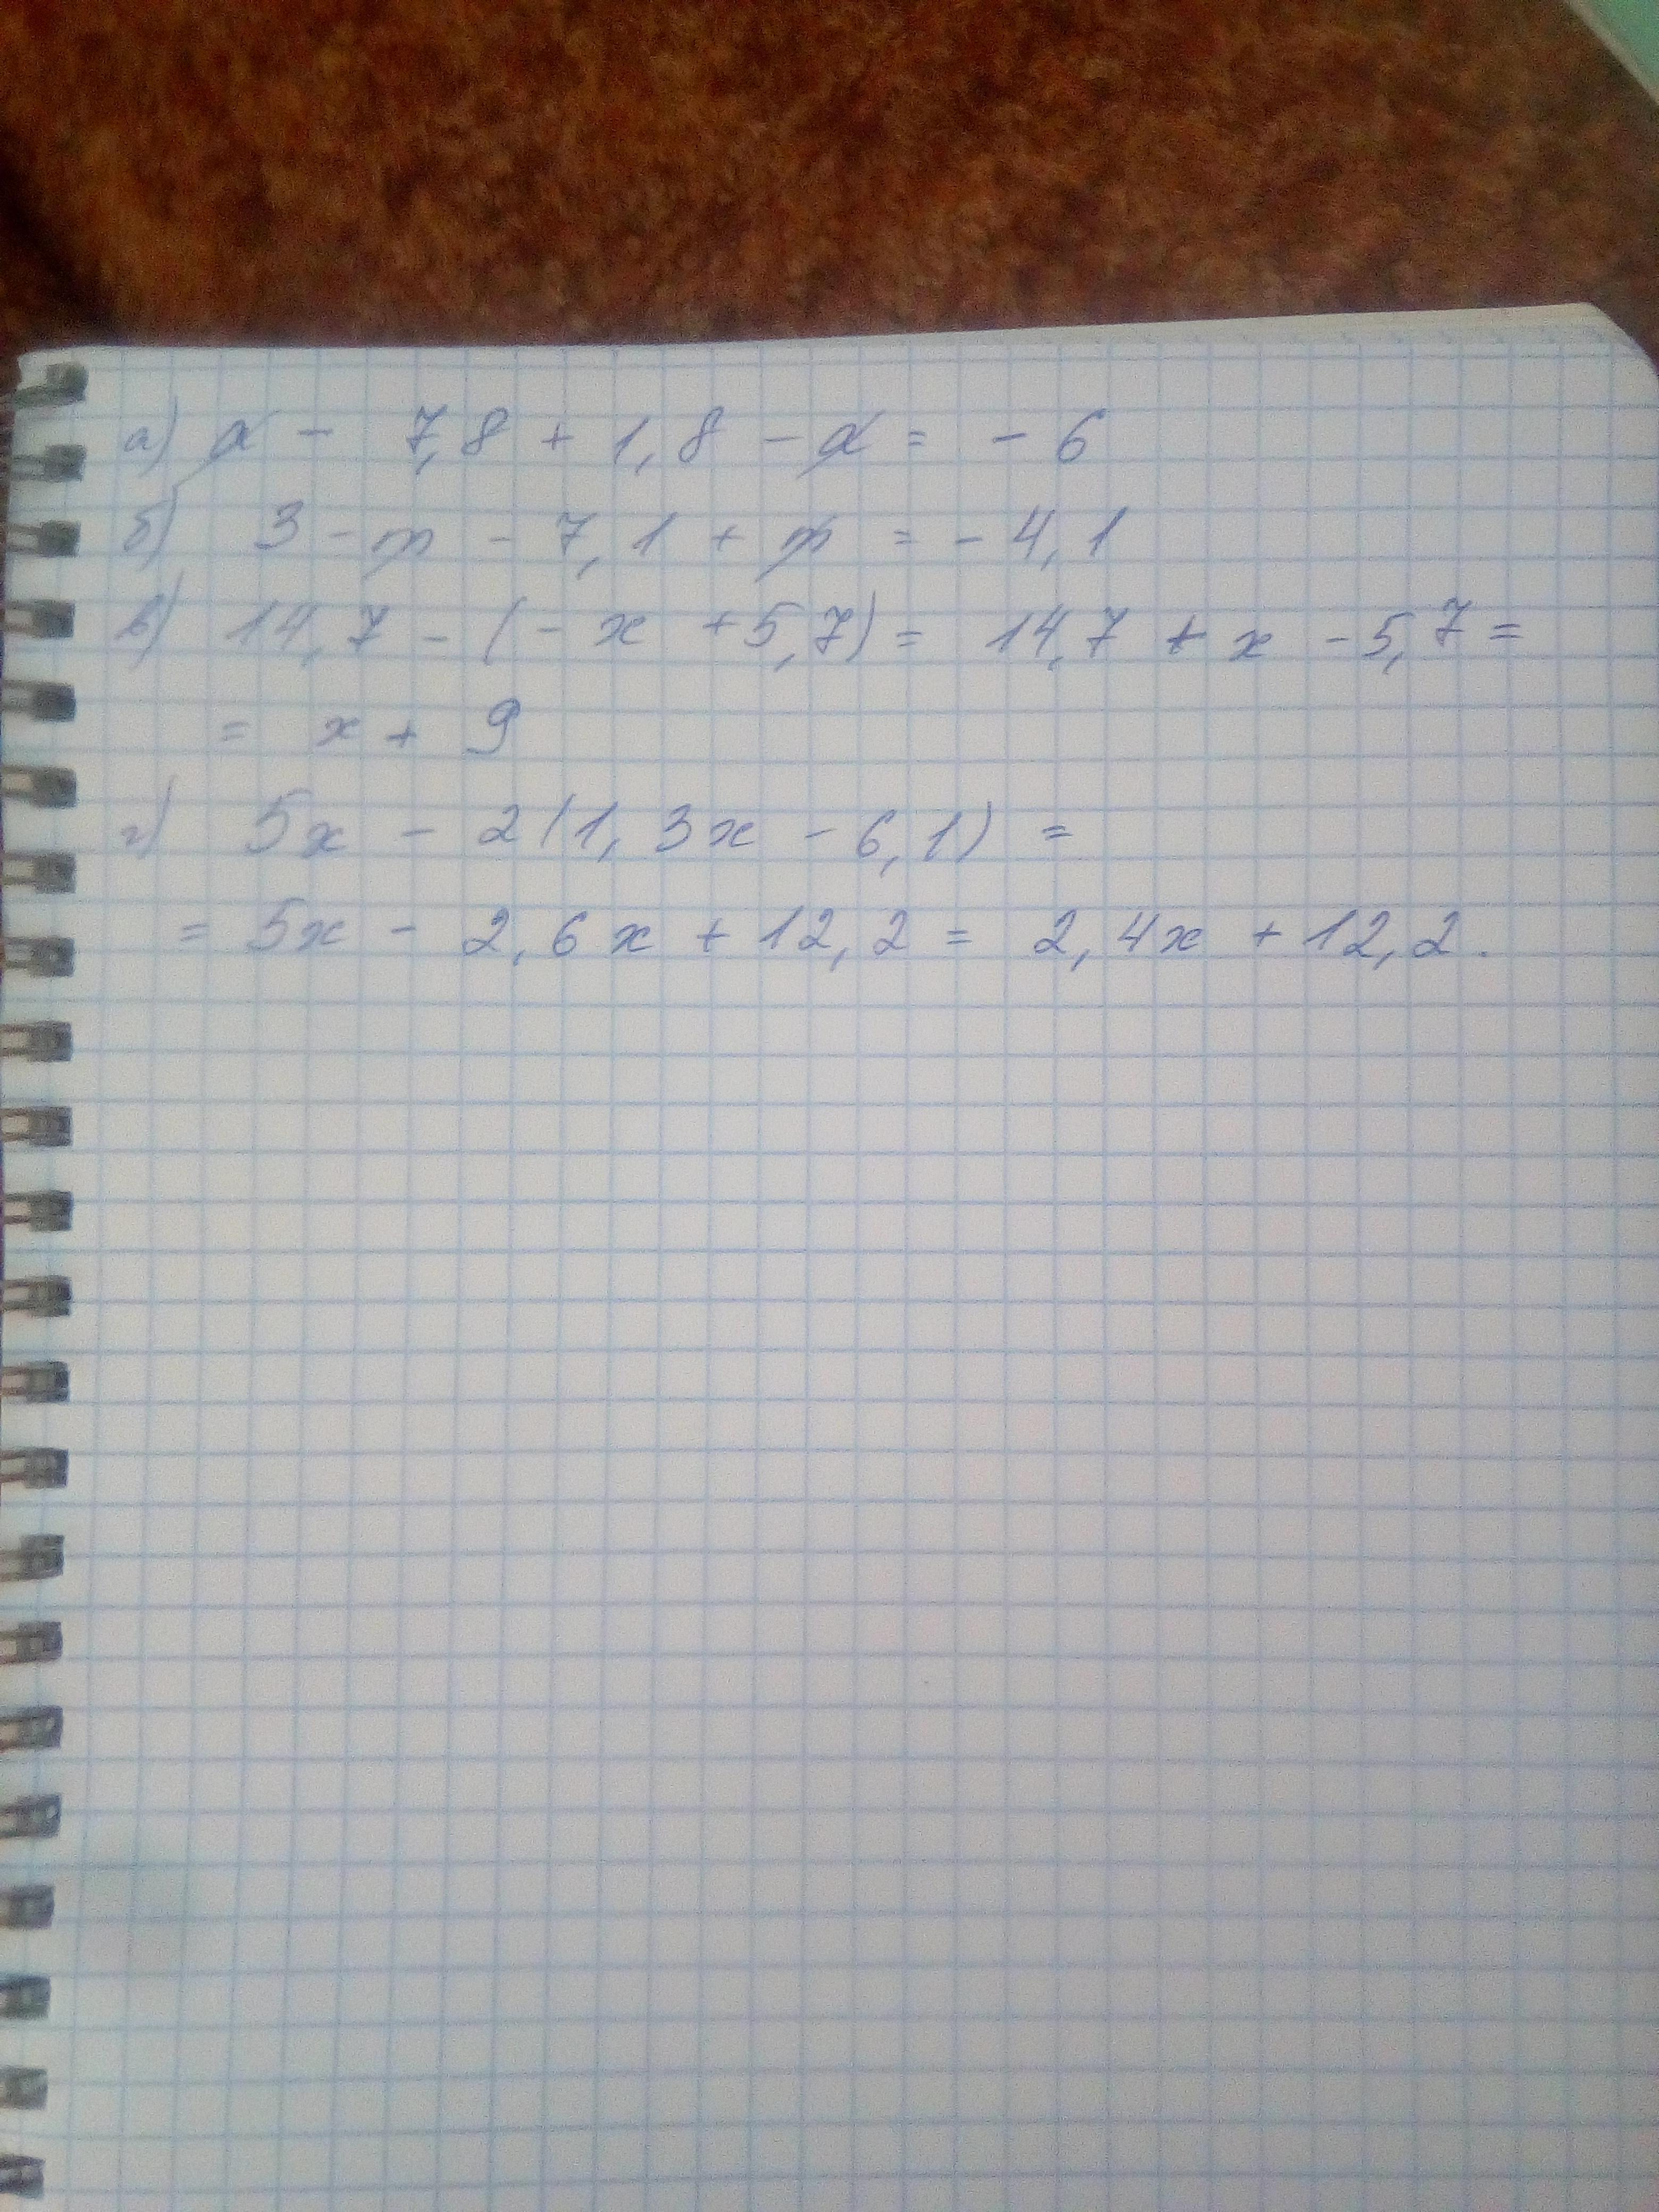 а) a - 7,8 + 1,8 - a = - 6
б) 3 - m - 7,1 + m = - 4,1
в) 14,7 - (- x + 5,7) = 14,7 + x - 5,7 =
= x + 9
г) 5x - 2(1,3x - 6,1) =
= 5x - 2,6x + 12,2 = 2,4x + 12,2.